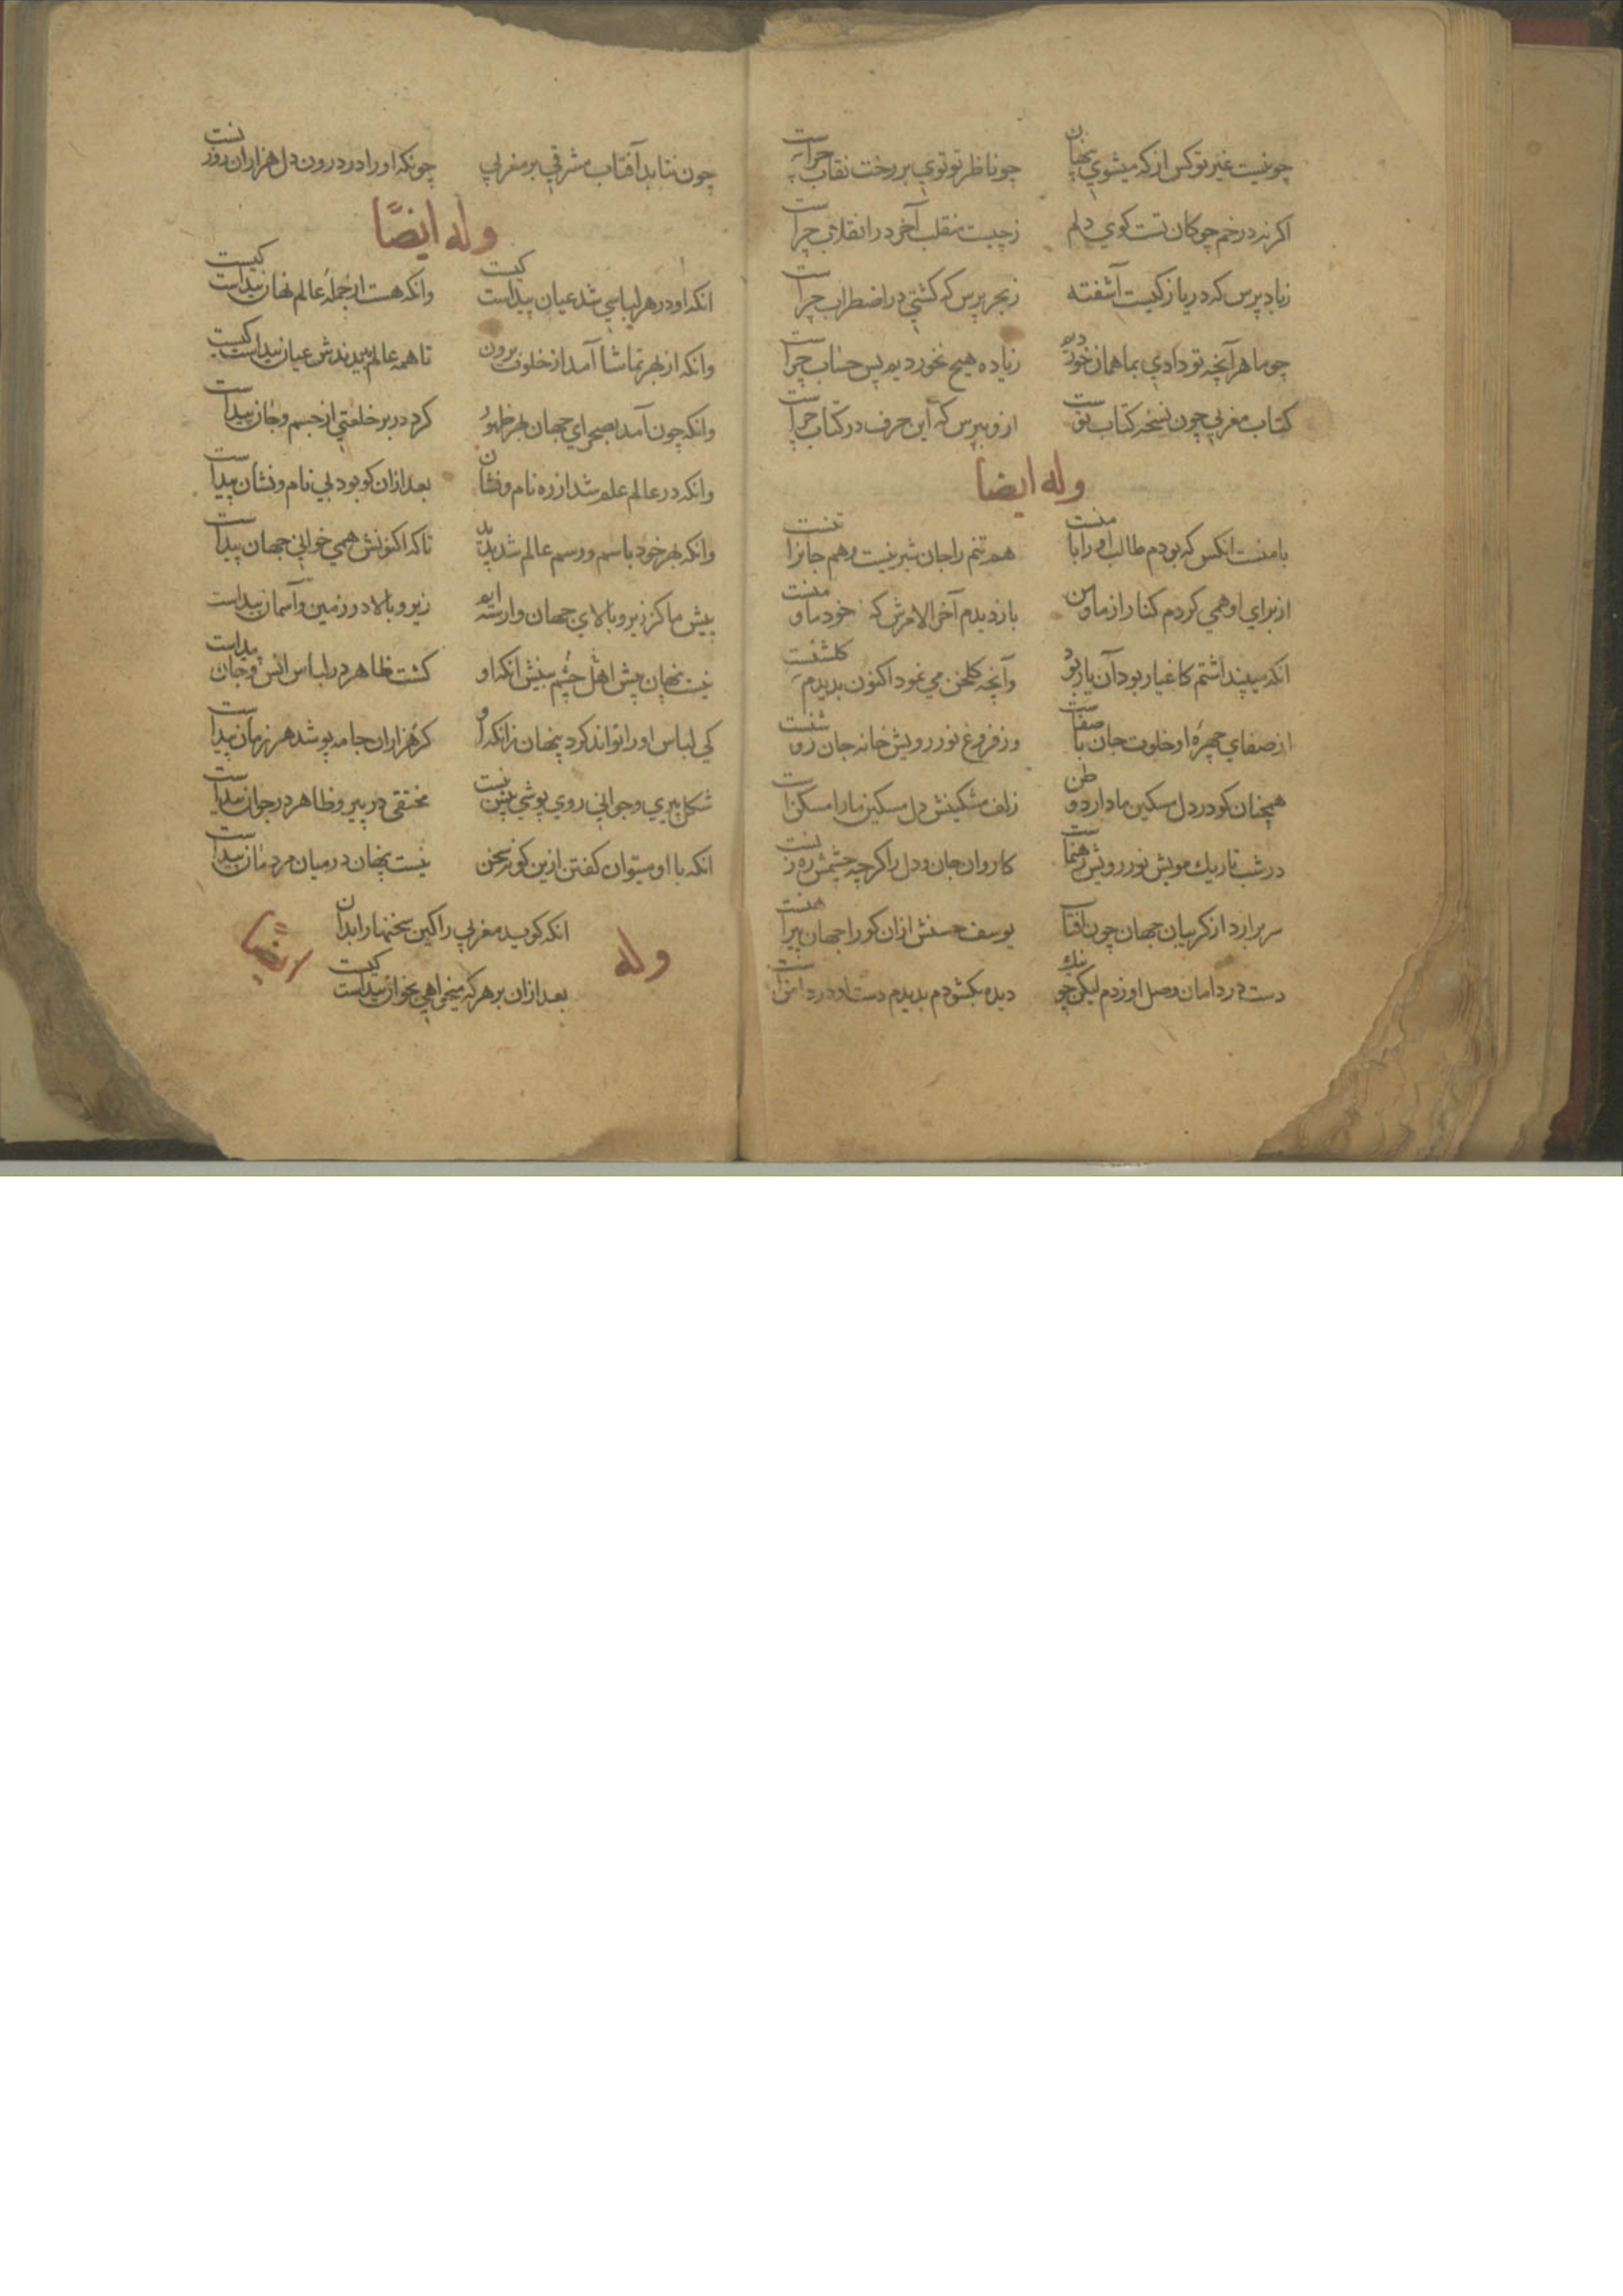 چونیست غیر تو کس از که میشوی پنهان چو ناظر تو توی بر رخت نقاب چراست
اکر نه در خم چوکان تست کوی دلم زچیست منقلب آخر در انقلاب چراست
زباد پرس که دریا زکیست آشفته زبحر پرس که کشتی در اضطراب چراست
چو ما هر آنچه تو دادی بما همان خوردیم زیاده هیچ نخوردیم پس حساب چراست
کتاب مغربی چون نسخه کتاب تو است ازو بپرس که این حرف در کتاب چراست
وله ایضا
با منست انکس که بودم طالب او را با منست هم تنم را جان شیرینست و هم جانرا تنست
از برای او همی کردم کنار از ما و من باز دیدم آخر الامرش که خود ما و منست
انکه میپنداشتم کاغیار بود آن یار بود وآنچه کلخن می نمود اکنون بدیدم کلشنست
از صفای چهرۀ او خلوت جان با صفاست وز فروغ نور رویش خانه جان روشنست
همچنان کو در دل مسکین ما دارد وطن زلف مشکینش دل مسکین ما را مسکنست
در شب تاریك مویش نور رویش رهنماست کاروان جان و دل را کرچه چشمش ره زنست
سر برارد از کریبان جهان چون آفتاب یوسف حسنش ازان کو را جهان پیراهنست
دست در دامان وصل او زدم لیکن چو نیك دیده بکشودم بدیدم دست او در دامنست
چون نتابد آفتاب مشرقی بر مغربی چونکه او را در درون دل هزاران روزنست
وله ایضًا
انکه او در هر لباسی شد عیان پیداست کیست وانکه هست از جملۀ عالم نهان پیداست کیست
وانکه از بهر تماشا آمد از خلوت برون تا همه عالم ببینندش عیان پیداست کیست
وانکه چون آمد بصحرای جهان بهر ظهور کرد در بر خلعتی از جسم و جان پیداست
وانکه در عالم علم شد از ره نام و نشان بعد ازان کو بود بی نام و نشان پیداست
وانکه بهر خود باسم و رسم عالم شد پدید تا که اکنونش همی خوانی جهان پیداست
پیش ما کز زیر و بالای جهان وارسته ایم زیر و بالا در زمین و آسمان پیداست
نیست پنهان پیش اهل چشم بینش انکه او کشت ظاهر در لباس انس و جان پیداست
کی لباس او را تواند کرد پنهان زانکه او کر هزاران جامه پوشد هر زمان پیداست
شکل پیری و جوانی روی پوشی بیش نیست مختفی در پیر و ظاهر در جوان پیداست
انکه با او میتوان کفتن ازین کونه سخن نیست پنهان در میان مردمان پیداست
انکه کوید مغربی را کین سخنها را بدان
بعد ازان بر هر که میخواهی بخوان پیداست کیست
وله ایضًا